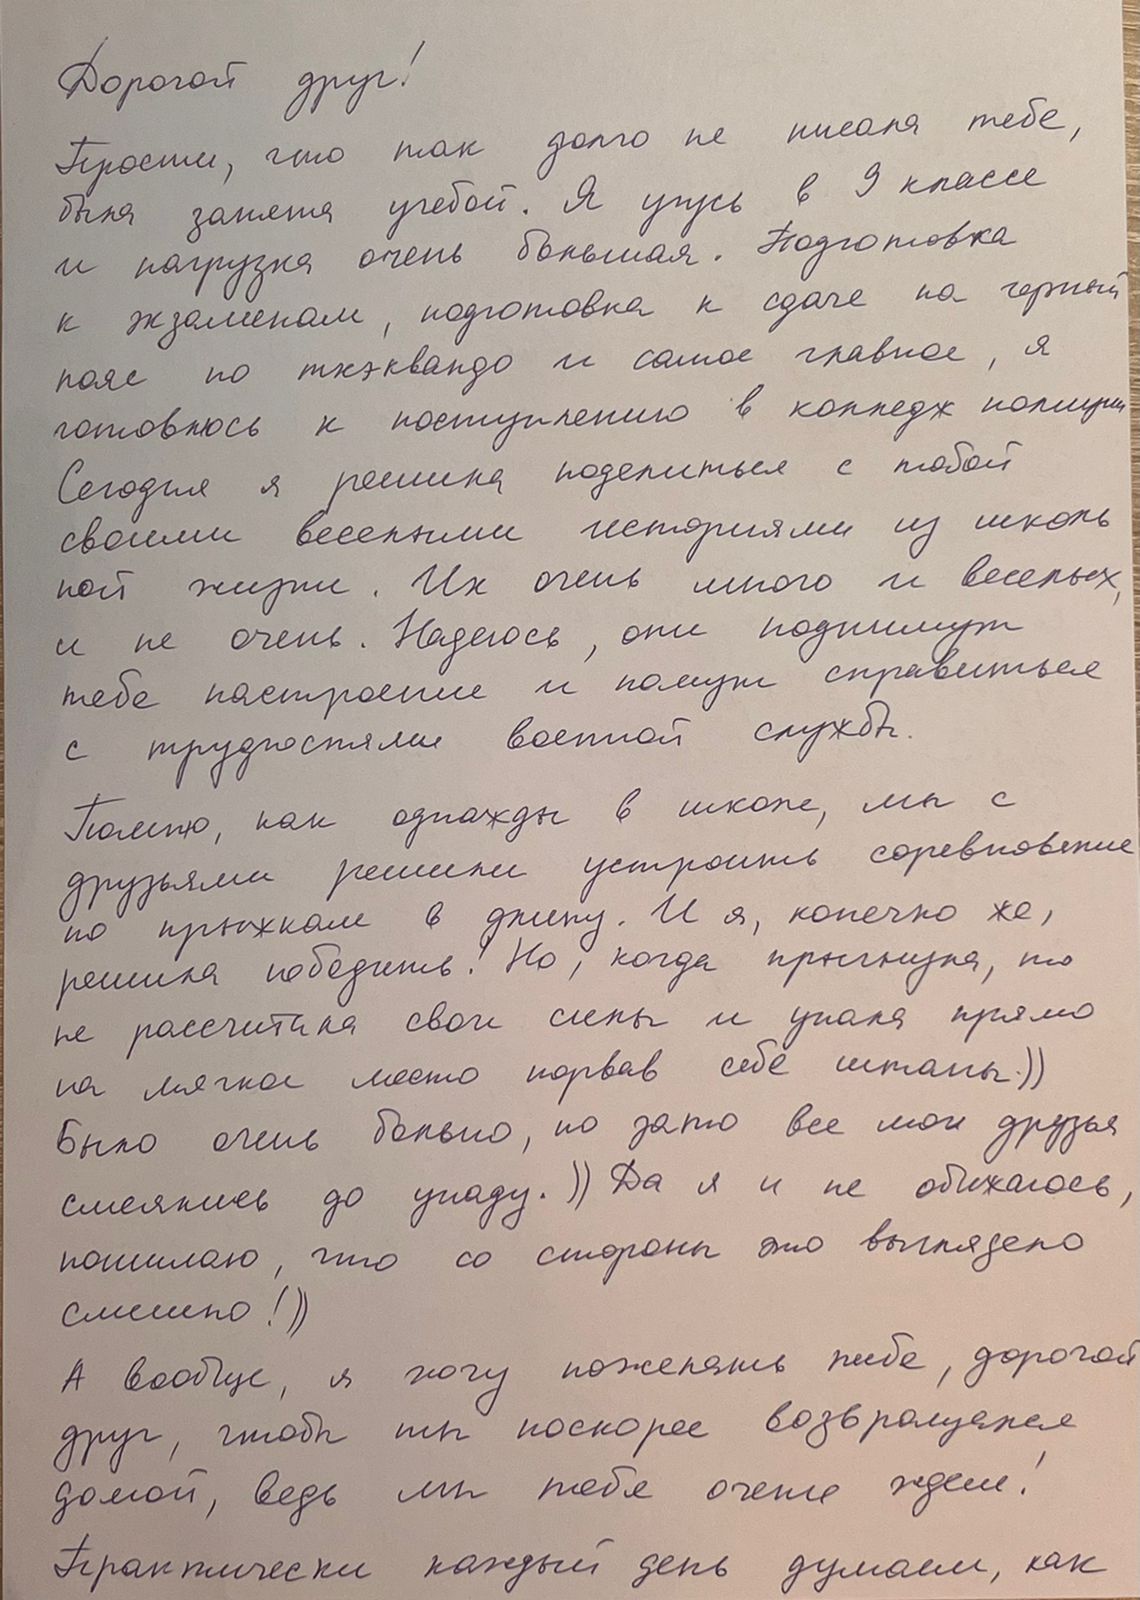 Дорогой друг!
Прости, что так долго не писала тебе,
была занята учебой. Я учусь в 9 классе
и нагрузка очень большая. Подготовка
к экзаменам, подготовка к сдаче на черный
пояс по тхэквандо и самое главное, я
готовлюсь к поступлению в колледж полиции
Сегодня я решила поделиться с тобой
своими веселыми историями из школь
ной жизни. Их очень много и веселых,
и не очень. Надеюсь, они поднимут
тебе настроение и помгут справиться
с трудностями военной службы.
Помню, как однажды в школе, мы с
друзьями решили устроить соревновение
по прыжкам в длину. И я, конечно же,
решила победить! Но, когда прыгнула, то
не рассчитала свои силы и упала прямо
на мягкое место порвав себе штаны.))
Было очень больно, но зато все мои друзья
смеялись до упаду.)) Да я и не обижаюсь,
понимаю, что со стороны это выглядело
смешно!))
А вообще, я хочу пожелать тебе, дорогой
друг, чтобы ты поскорее возвращался
домой, ведь мы тебя очень ждем!
Практически каждый день думаем, как